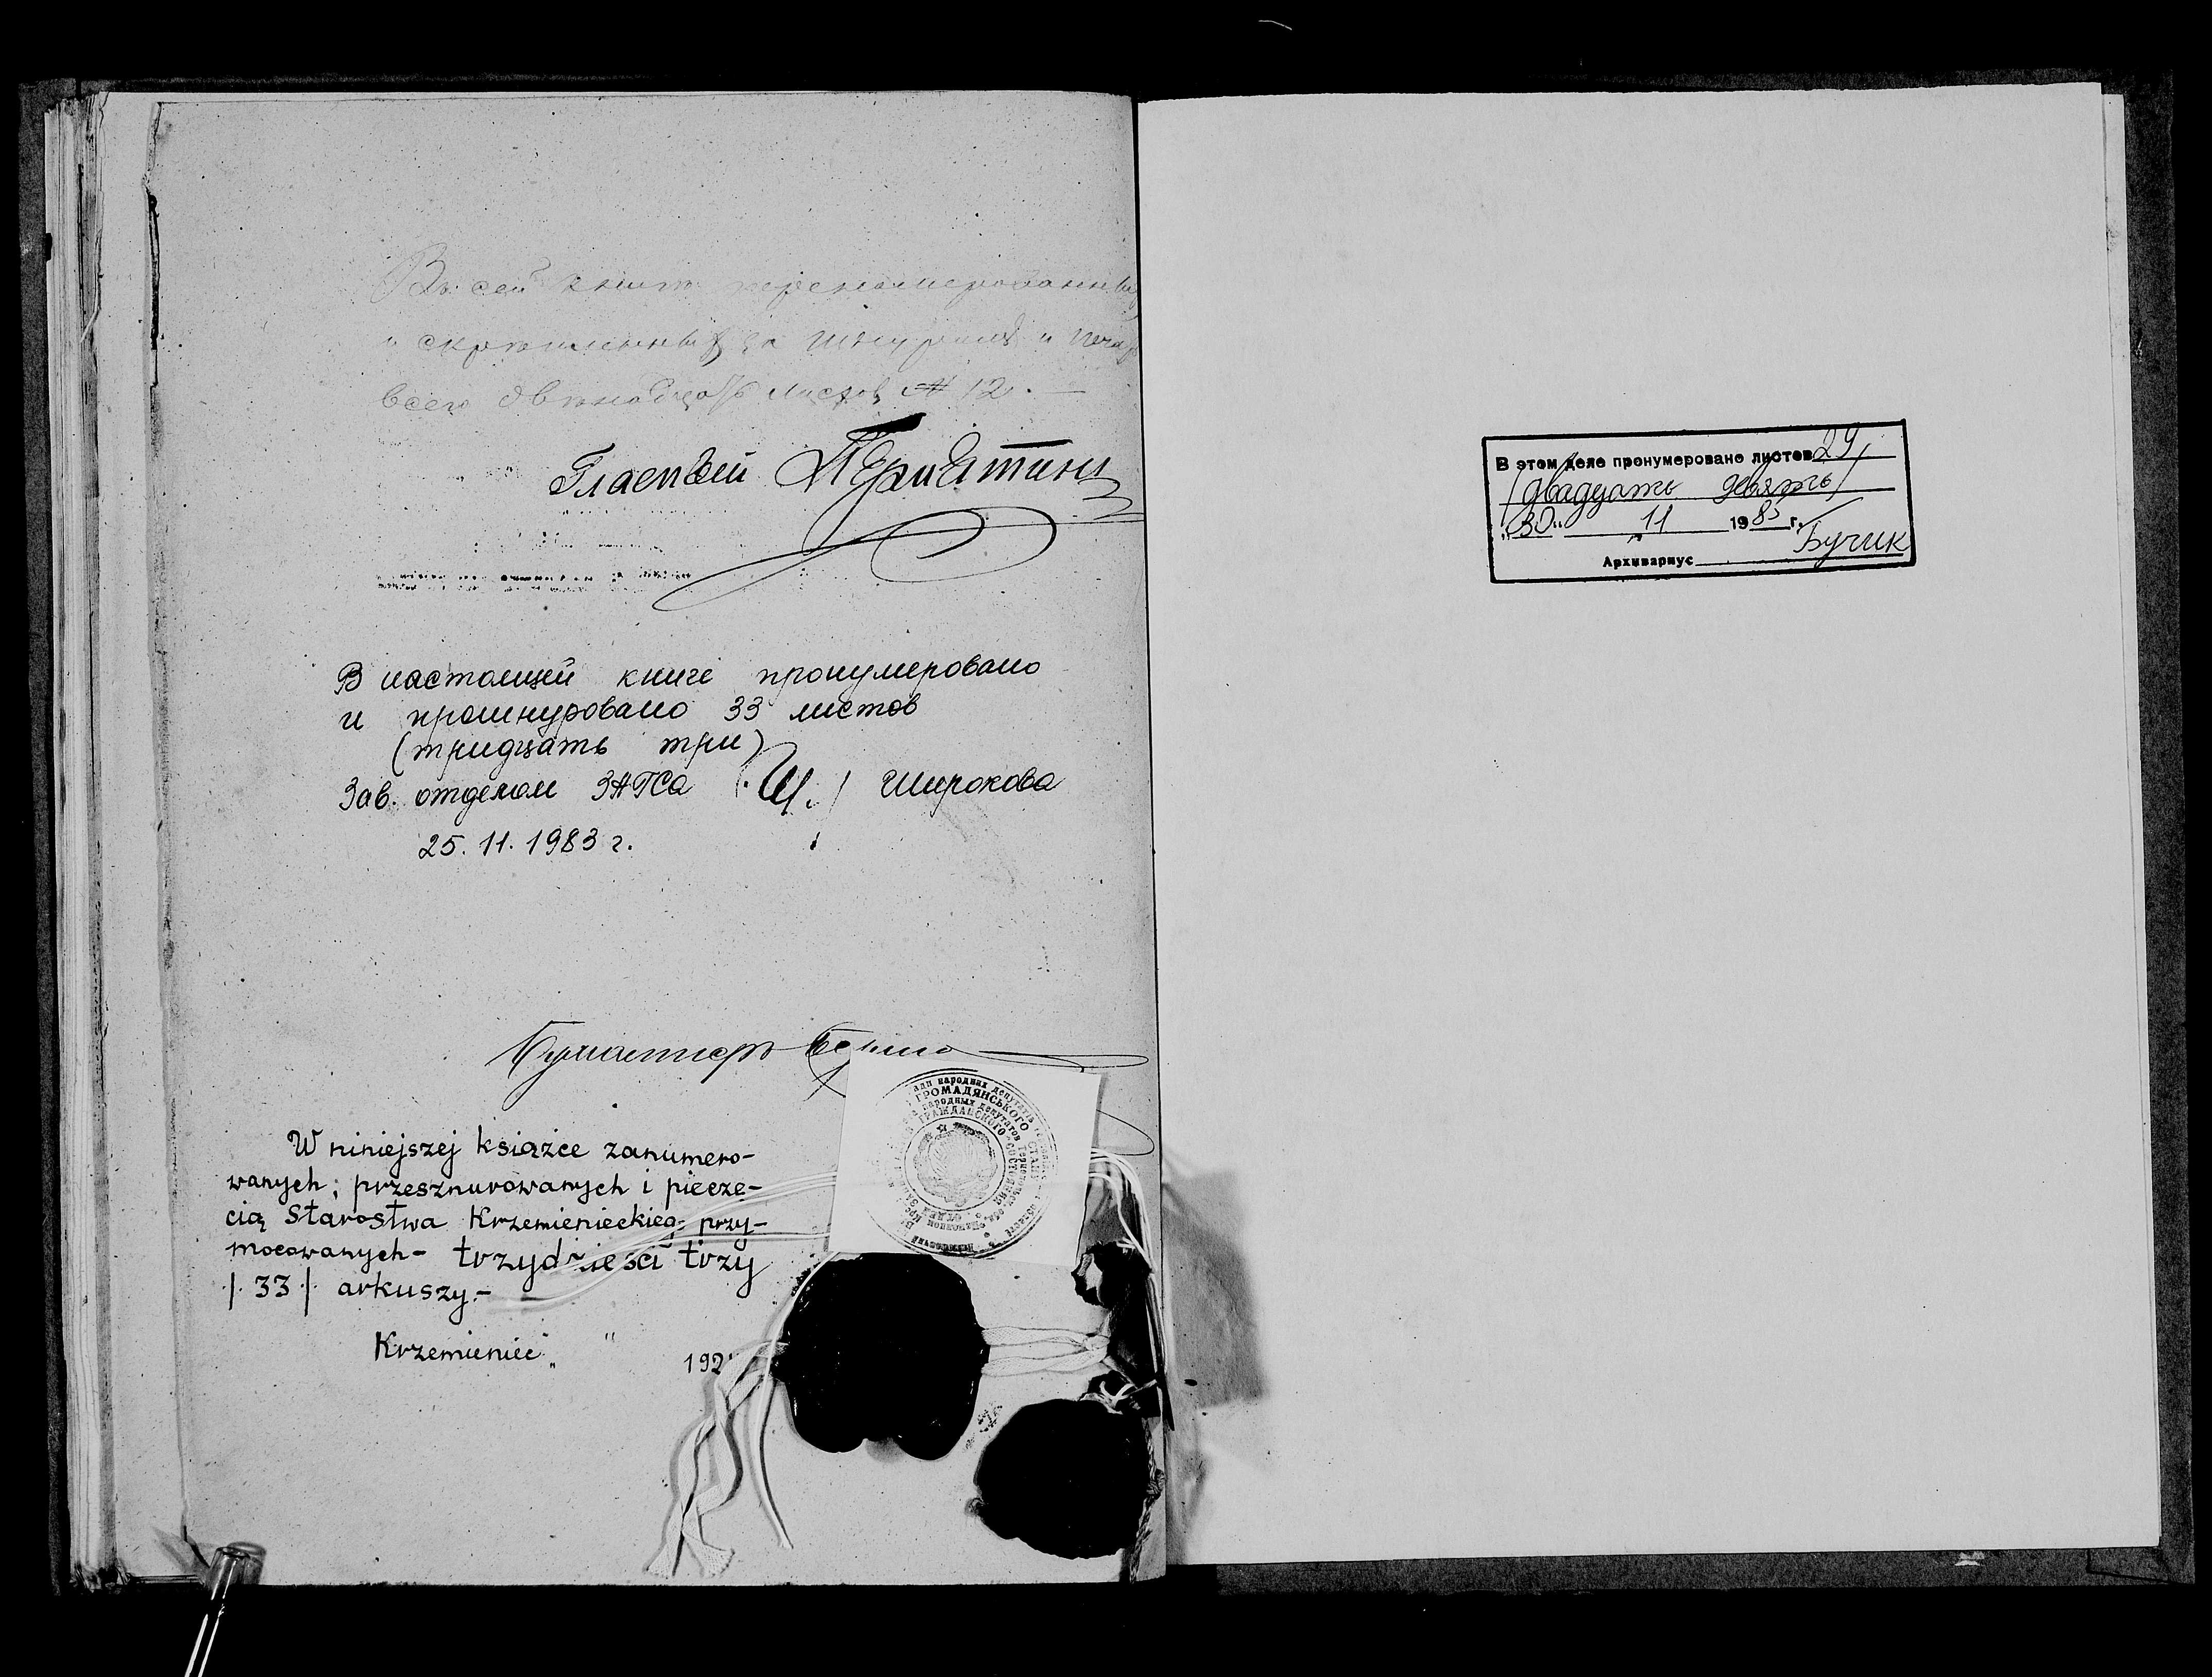 Въ сей книгѣ перенумерованныхъ
и скрѣпленныхъ за шнуромъ и печа
всего двѣнадцать листовъ № 12. —
Гласный
В настоящей книге пронумеровано
и прошнуровано 33 листов
(тридцать три)
Зав. отделом ЗАГСа Широкова
25. 11. 1983 г.
Бухгалтеръ
W niniejszej książce zanumero-
wanych; przesznurowanych i piecze-
cią Starostwa Krzemienieckieg. przy-
mocowanych - trzydzieści trzy
/. 33 /. arkuszy.-
Krzemieniec „ " 192
ГРОМАДЯНСЬКОГО СТАНУ
народных депутатов
ГРАЖДАНСКОГО СОСТОЯНИЯ
В этом деле пронумеровано листов 29
/двадцать девять/
„30" 11 1983 г.
Архивариус Бучик